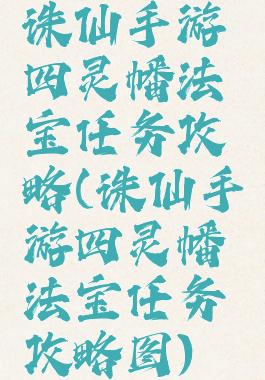 诛仙手游
四灵幡法
宝任务攻
略(诛仙手
游四灵幡
法宝任务
攻略图)